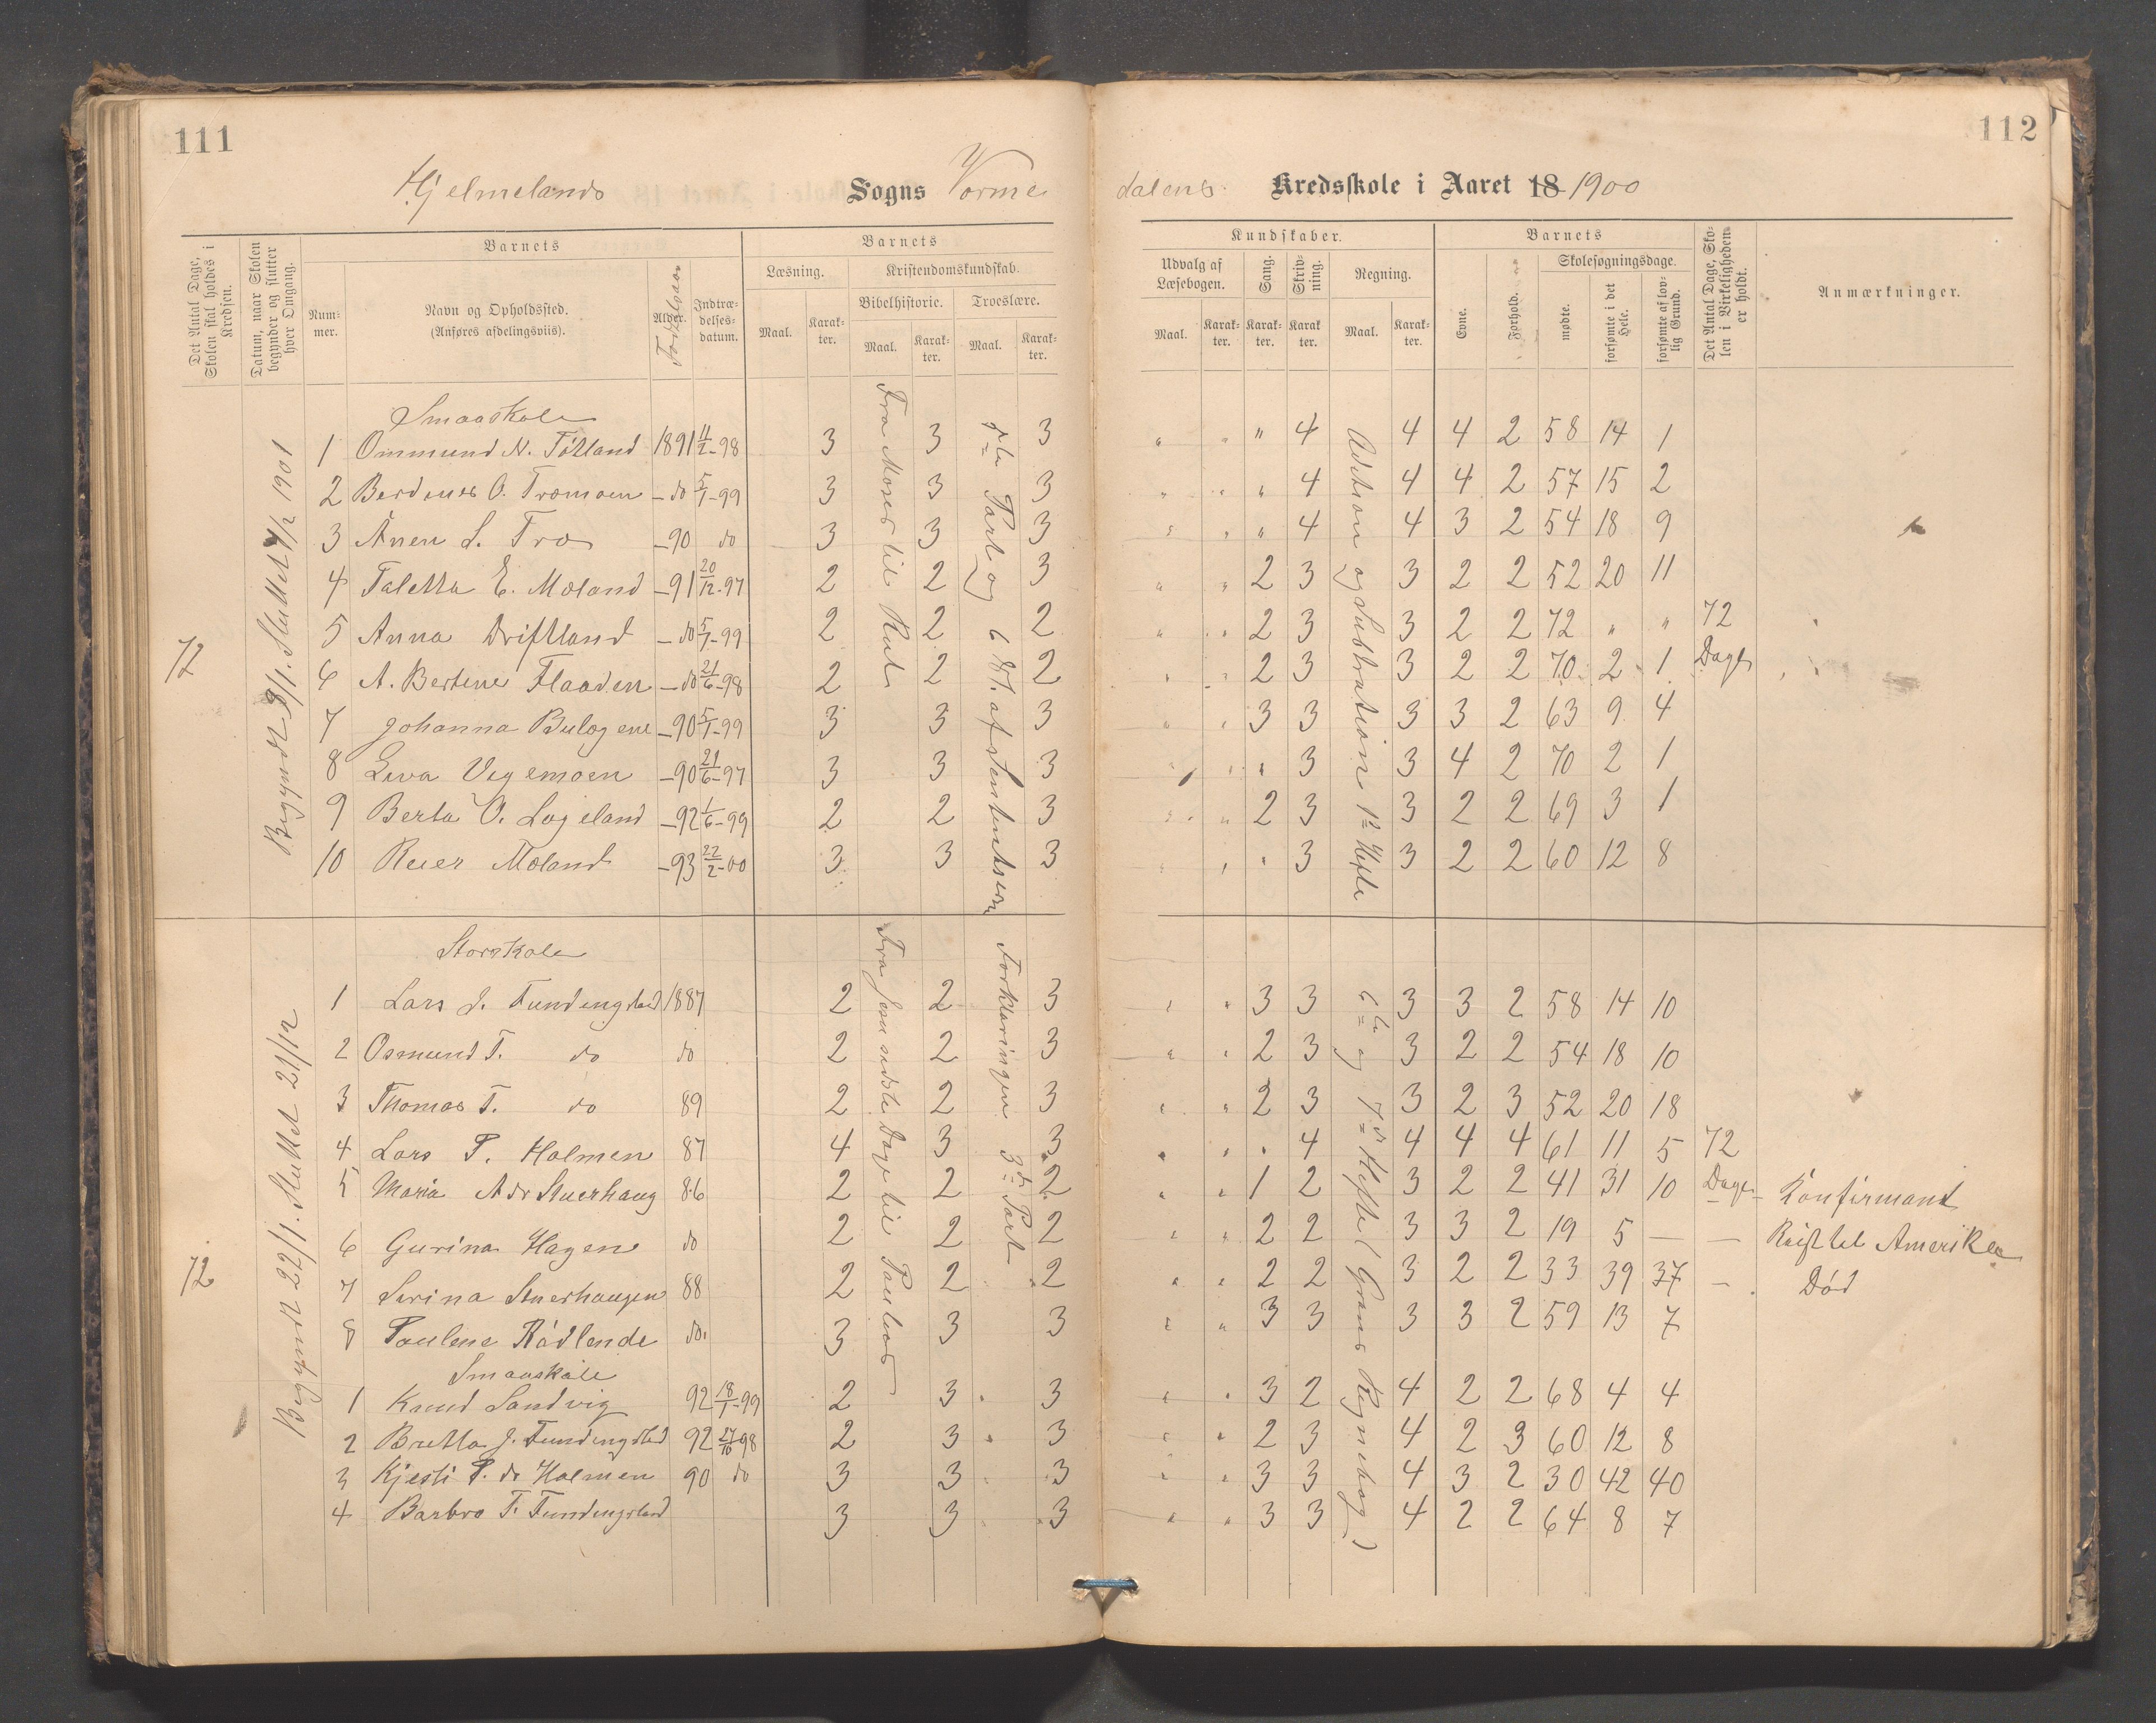 111
112
Hjelmelands Sogns Vorme dalens Kredsskole i Aaret 18 1900
Det Antal Dage, Skolen skal holdes i Kredsen.
Datum, naar Skolen begynder og slutter hver Omgang.
Barnets
Nummer.
Navn og Opholdssted.
(Anføres afdelingsviis).
Alder.
Indtrædelsesdatum.
Barnets
Læsning.
Kristendomskundskab.
Bibelhistorie.
Troeslære.
Maal. Karakter. Maal. Karakter. Maal. Karakter.
Kundskaber.
Udvalg af Læsebogen.
Sang.
Skrivning.
Regning.
Maal. Karakter. Karakter. Karakter Maal. Karakter.
Barnets
Evne.
Forhold.
Skolesøgningsdage.
mødte.
forsømte i det Hele.
forsømte af lovlig Grund.
Det Antal Dage, Skolen i Virkeligheden er holdt.
Anmærkninger.
72
Begyndt 8/1. Sluttet 4/2 1901
Fra Moses til Rut
1ste Part og
Addition og Subtraktion 1ste Hefte
72 Dage
Smaaskole
1 Ommund N. Tøtland 1891 11/2-98 3 3 3 " " " 4 4 4 2 58 14 1
2 Berdines O. Tromoen – do 5/1-99 3 3 3 " " " 4 4 4 2 57 15 2
3 Ånen L. Tro – 90 do 3 3 3 " " " 4 4 3 2 54 18 9
4 Taletta E. Mæland – 91 20/12-97 2 2 3 " " 2 3 3 2 2 52 20 11
5 Anna Driftland – do 5/1-99 2 2 2 " " 2 3 3 2 2 72 " "
6 A. Bertine Flaaden – do 21/6-98 2 2 2 " " 2 3 3 2 2 70 2 1
7 Johanna Buløgene – 90 5/1-99 3 3 3 " " 3 3 3 3 2 63 9 4
8 Liva Vigemoen – 90 21/6-97 3 3 3 " " 3 3 4 2 70 2 1
9 Berta O. Løgeland – 92 1/6-99 2 2 3 " " 2 3 3 2 2 69 3 1
10 Reier Mæland – 93 22/2-00 3 3 3 " " " 3 3 2 2 60 12 8
72
Begyndt 22/1. Sluttet 21/12
Fra Jesu sidste Dage til Paulus
Forklaringen 3die Part
6te og 7de Hefte (Græns Regnebog)
72 Dage
Storskole
1 Lars J. Fundingsland 1887 2 2 3 " " 3 3 3 3 2 58 14 10
2 Osmund T. do do 2 2 3 " " 2 3 3 2 2 54 18 10
3 Thomas T. do 89 2 2 3 " " 2 3 3 2 3 52 20 18
4 Lars P. Holmen 87 4 3 3 " " " 4 4 4 4 61 11 5
5 Maria Adr Stuerhaug 86 2 2 2 " " 1 2 3 2 2 41 31 10 Konfirmant
6 Gurina Hagen do 2 2 2 " " 2 2 3 3 2 19 5 — — Reist til Amerika
7 Serina Stuerhaugen 88 2 2 2 " " 2 2 3 2 2 33 39 37 – Död
8 Pauline Rödlende do. 3 3 3 " " 3 3 3 3 2 59 13 7
Smaaskole
1 Knud Sandvig 92 18/1-99 2 3 3 " " 3 2 4 2 2 68 4 4
2 Britta J. Fundingsland 92 27/10 98 2 3 3 " " 2 3 4 2 3 60 12 8
3 Kjesti P. dr Holmen 90 do 3 3 3 " " 3 3 4 3 2 30 42 40
4 Barbro T. Fundingsland 3 3 3 " " 3 3 4 2 2 64 8 7